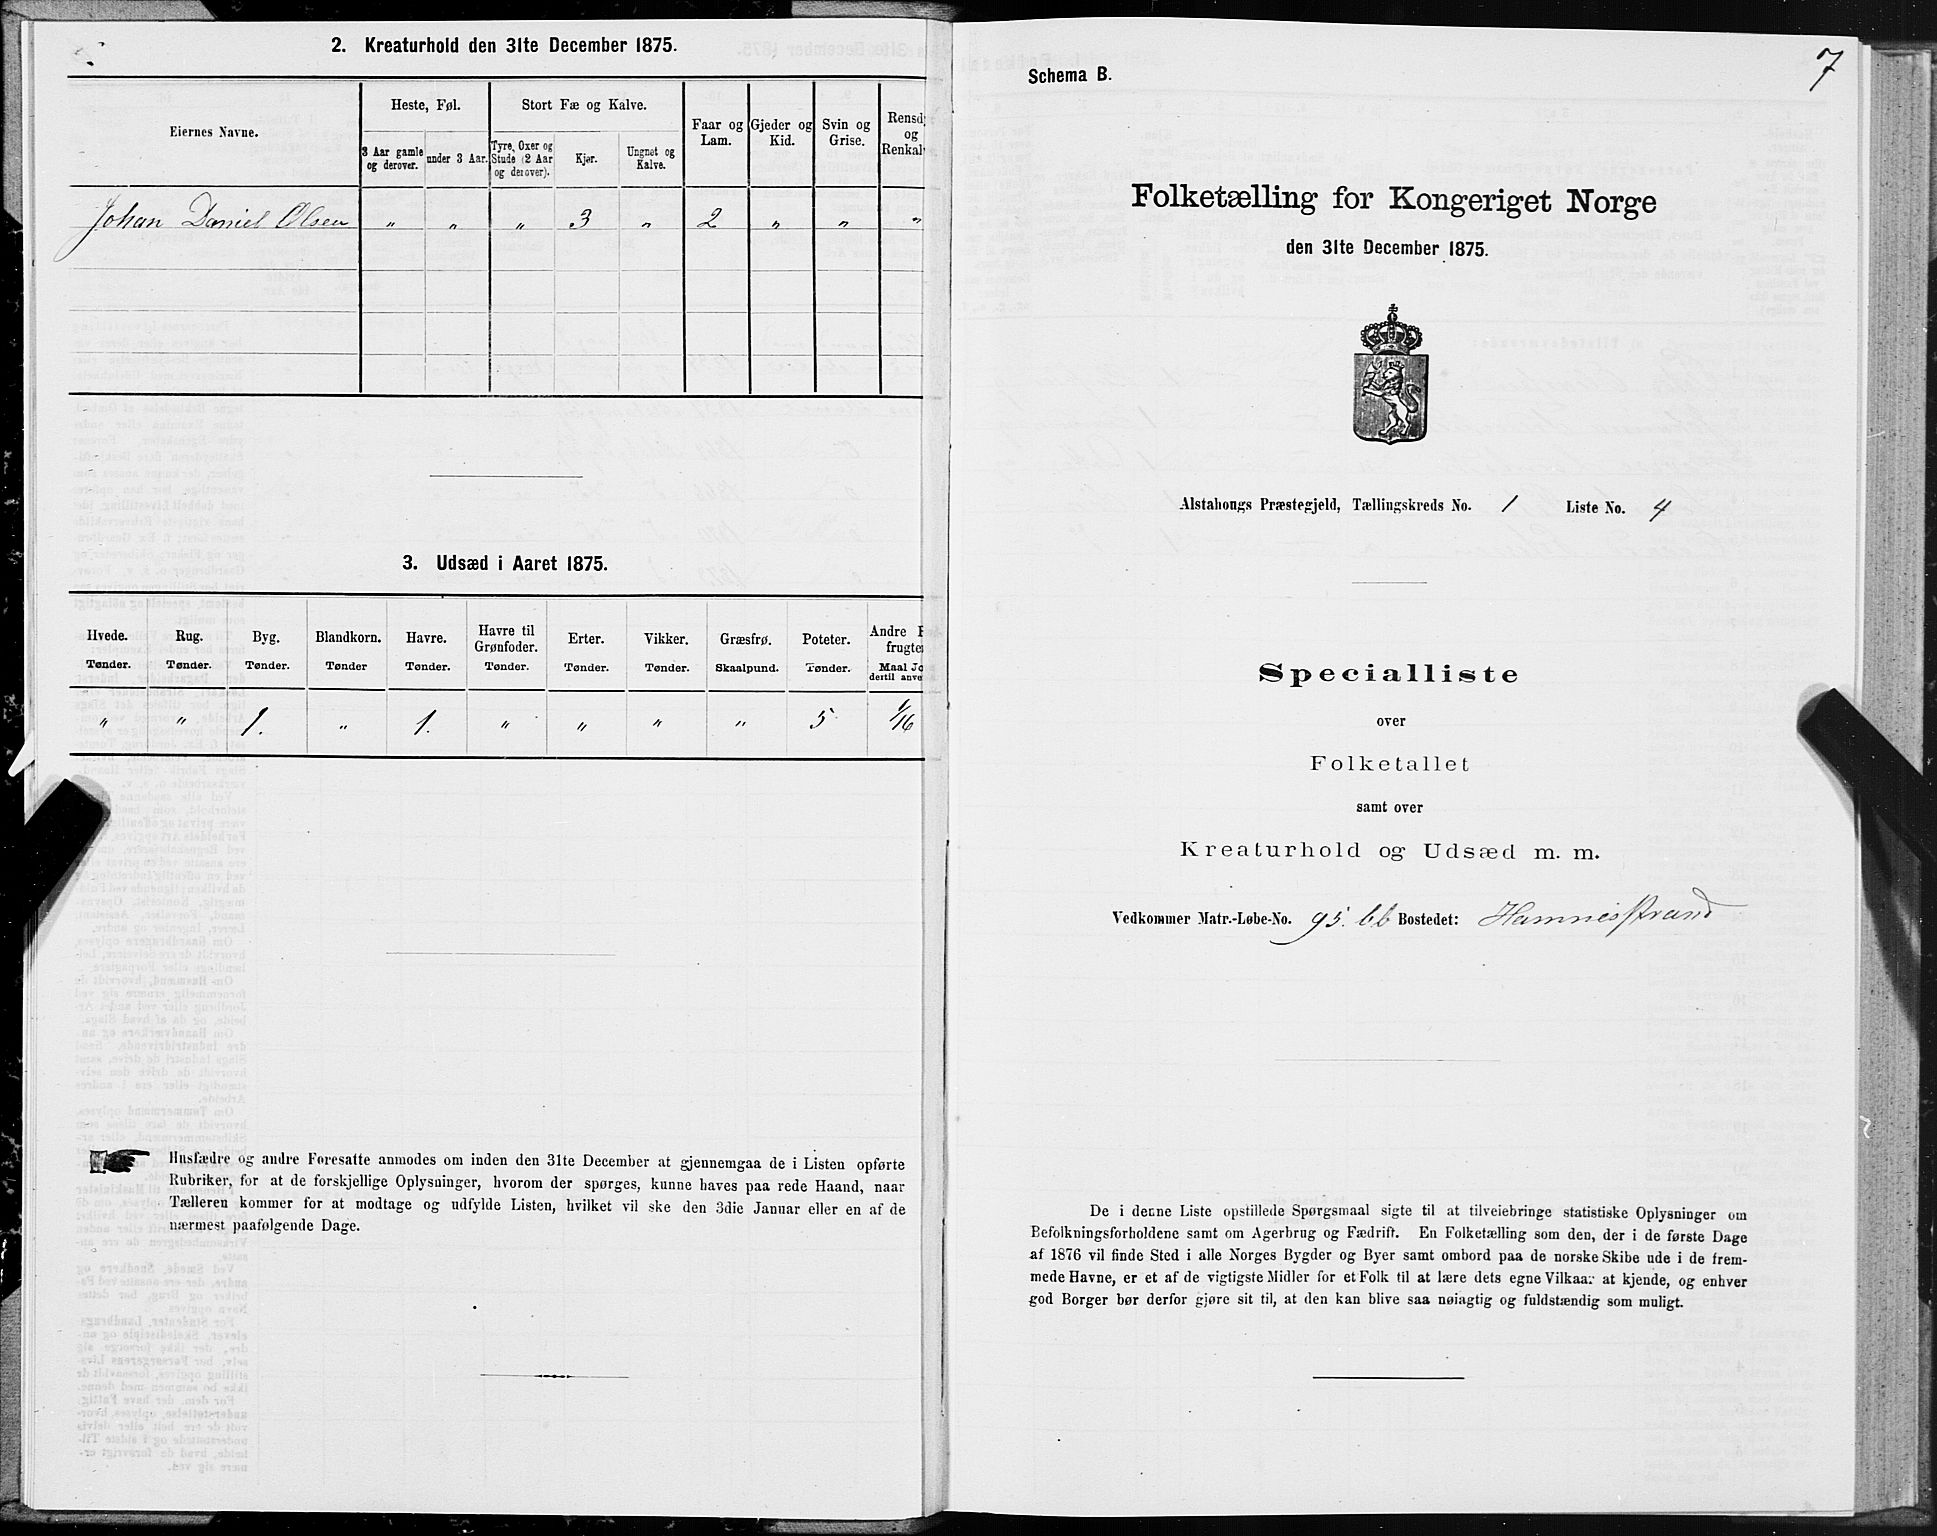 2. Kreaturhold den 31te December 1875.
Eiernes Navne.
Heste, Føl.
Stort Fæ og Kalve.
Faar og Lam.
Gjeder og Kid.
Svin og Grise.
Rensd
og
Renkal
3 Aar gamle og derover.
under 3 Aar.
Tyre, Oxer og Stude (2 Aar og derover).
Kjør.
Ungnøt og Kalve.
Johan Daniel Olsen " " " 3 " 2 " " "
3. Udsæd i Aaret 1875.
Hvede. Rug. Byg. Blandkorn. Havre. Havre til Grønfoder. Erter. Vikker. Græsfrø. Poteter. Andre
frugte
Tønder. Tønder. Tønder. Tønder Tønder. Tønder. Tønder. Tønder. Skaalpund. Tønder. Maal Jo
dertil anve
" " 1. " 1. " " " " 5 1/16
Husfædre og andre Foresatte anmodes om inden den 31te December at gjennemgaa de i Listen opførte
Rubriker, for at de forskjellige Oplysninger, hvorom der spørges, kunne haves paa rede Haand, naar
Tælleren kommer for at modtage og udfylde Listen, hvilket vil ske den 3die Januar eller en af de
nærmest paafølgende Dage.
7
Schema B.
Folketælling for Kongeriget Norge
den 31te December 1875.
Alstahongs Præstegjeld, Tællingskreds No. 1 Liste No. 4
Specialliste
over
Folketallet
samt over
Kreaturhold og Udsæd m. m.
Vedkommer Matr.-Løbe-No. 95. bb Bostedet: Hamnesstrand
De i denne Liste opstillede Spørgsmaal sigte til at tilveiebringe statistiske Oplysninger om
Befolkningsforholdene samt om Agerbrug og Fædrift. En Folketælling som den, der i de første Dage
af 1876 vil finde Sted i alle Norges Bygder og Byer samt ombord paa de norske Skibe ude i de frem-
mede Havne, er et af de vigtigste Midler for et Folk til at lære dets egne Vilkaar at kjende, og enhver
god Borger bør derfor gjøre sit til, at den kan blive saa nøiagtig og fuldstændig som muligt.